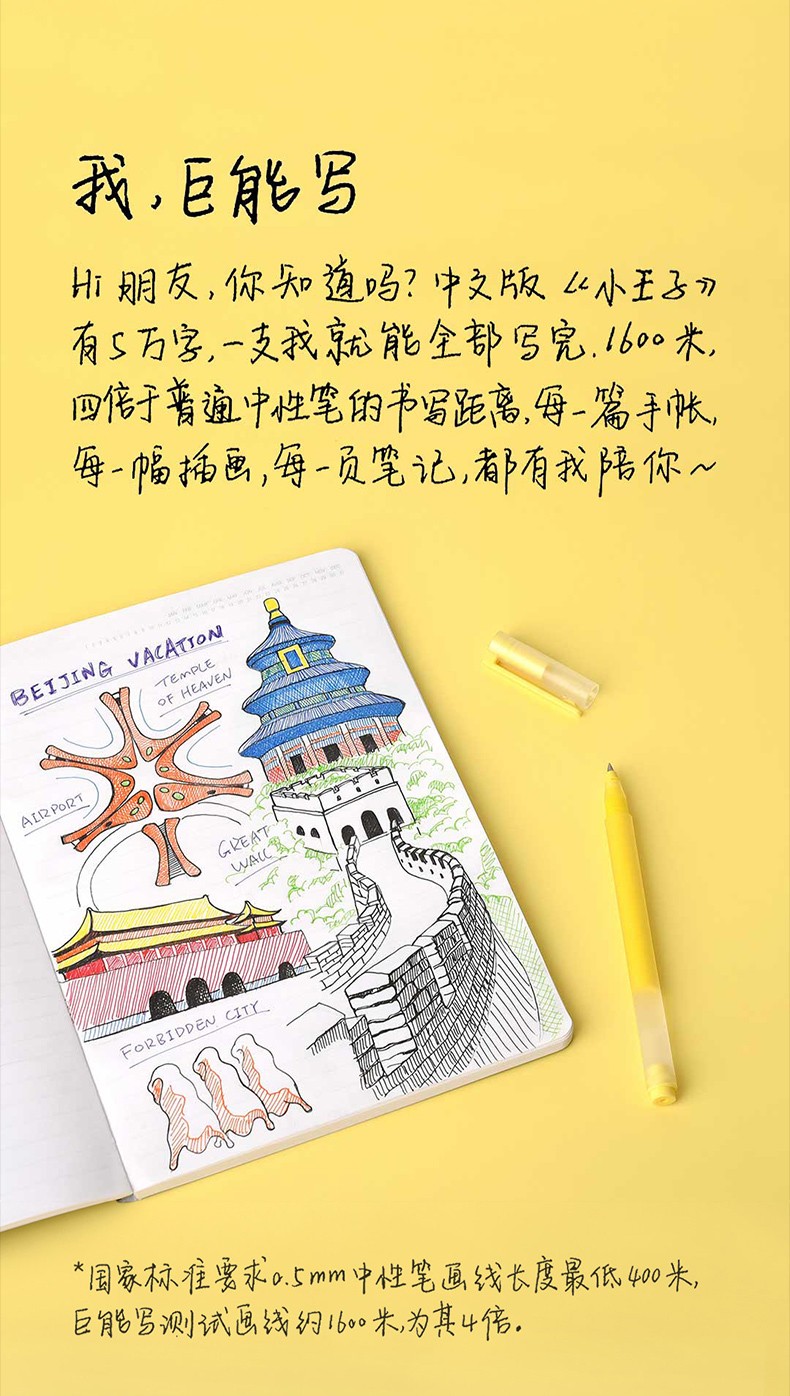 我,巨能写
Hi 朋友,你知道吗?中文版《小王子》
有5万字,一支我就能全部写完.1600米,
四倍于普通中性笔的书写距离,每一篇手帐,
每一幅插画,每一页笔记,都有我陪你~
BEIJING VACATION
TEMPLE
OF HEAVEN
AIRPORT
GREAT
WALL
FORBIDDEN CITY
*国家标准要求0.5mm中性笔画线长度最低400米,
巨能写测试画线约1600米,为其4倍。